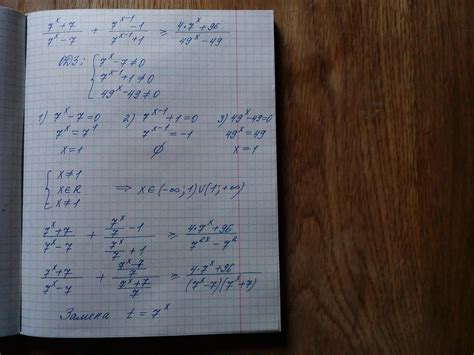 (7^x+7)/(7^x-7) + (7^(x-1)-1)/(7^(x-1)+1) ≥ (4·7^x+96)/(49^x-49)
ОДЗ: { 7^x-7≠0
7^(x-1)+1≠0
49^x-49≠0
1) 7^x-7=0 2) 7^(x-1)+1=0 3) 49^x-49=0
7^x=7^1 7^(x-1)=-1 49^x=49
x=1 ∅ x=1
{ x≠1
x∈R ⇒ x∈(-∞;1)∪(1;+∞)
x≠1
(7^x+7)/(7^x-7) + (7^x/7-1)/(7^x/7+1) ≥ (4·7^x+96)/(7^(2x)-7^2)
(7^x+7)/(7^x-7) + ((7^x-7)/7)/((7^x+7)/7) ≥ (4·7^x+96)/((7^x-7)(7^x+7))
Замена t=7^x